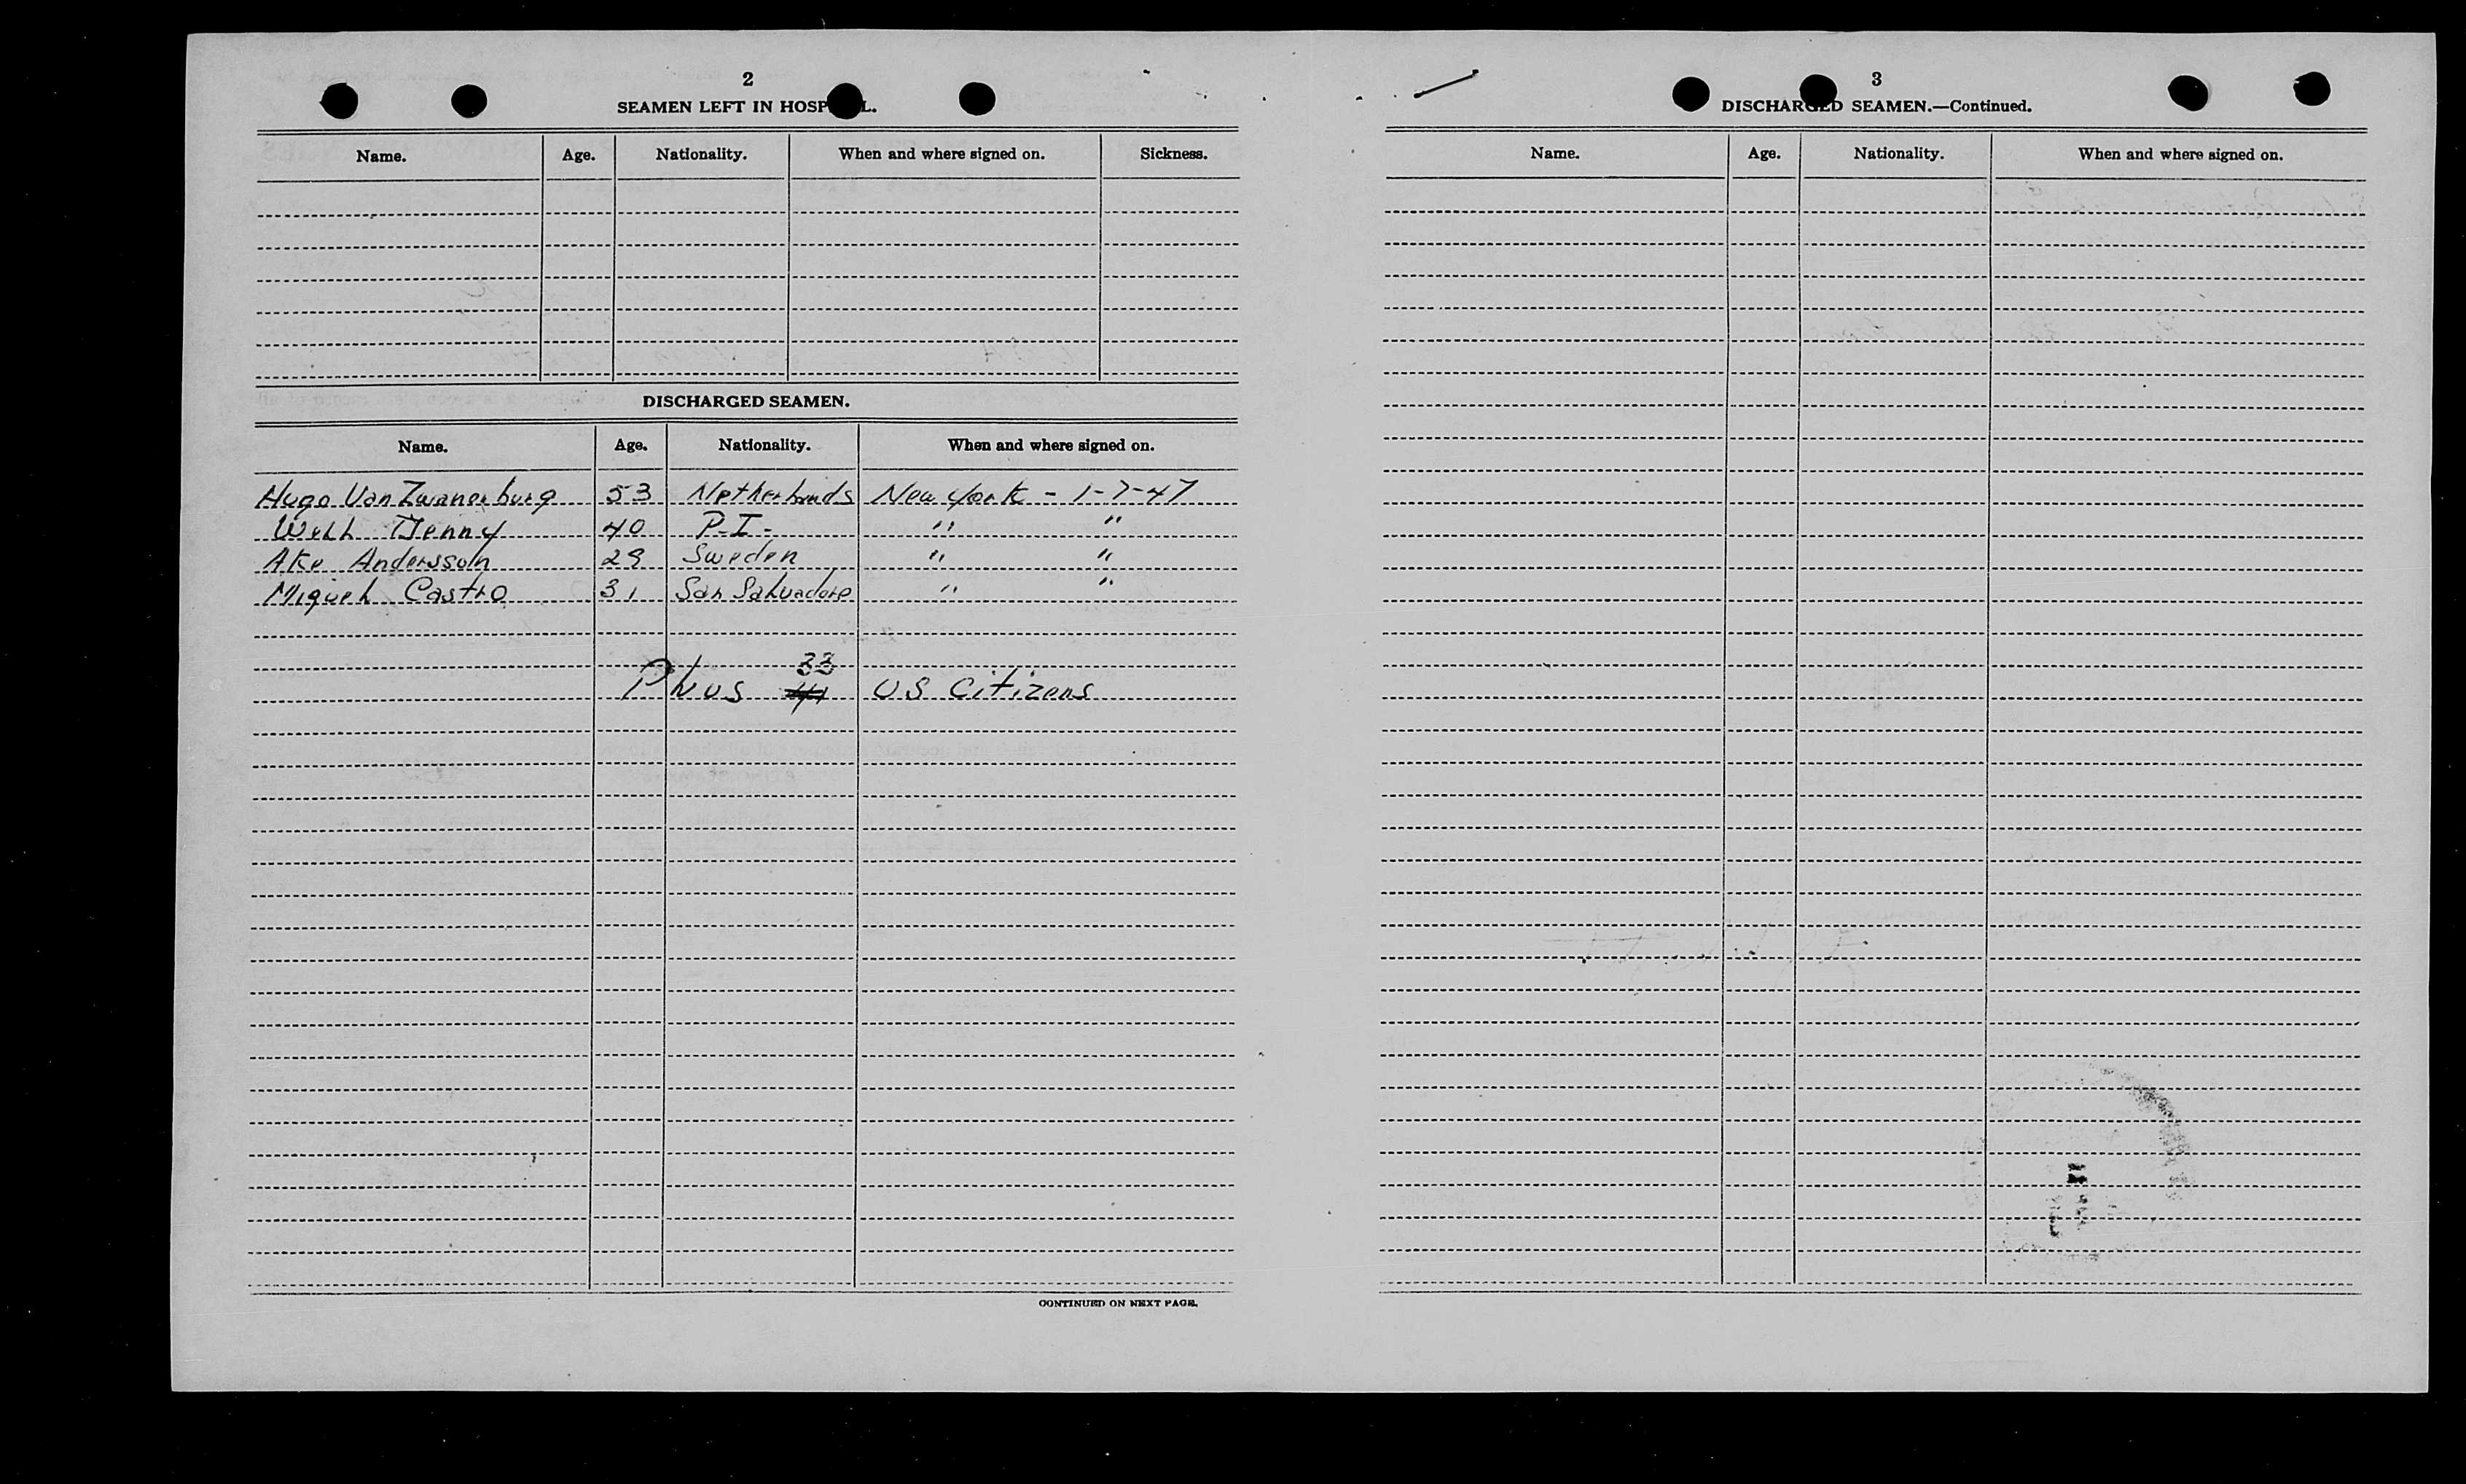 2
SEAMEN LEFT IN HOSP L.
Name. Age. Nationality. When and where signed on. Sickness.
DISCHARGED SEAMEN.
Name. Age. Nationality. When and where signed on.
Hugo Van Zwanenburg 53 Netherlands New York - 1-7-47
Well Denny 40 P-I- " "
Ake Andersson 29 Sweden " "
Miguel Castro 31 San Salvadore " "
33
Plus US Citizens
CONTINUED ON NEXT PAGE.
3
DISCHARGED SEAMEN.—Continued.
Name. Age. Nationality. When and where signed on.